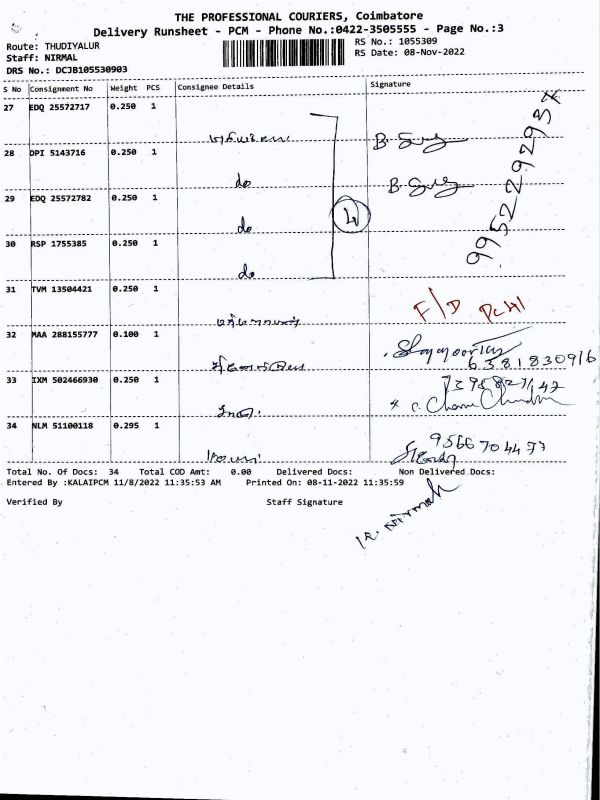 THE PROFESSIONAL COURIERS, Coimbatore
Delivery Runsheet - PCM - Phone No.:0422-3505555 - Page No.:3
Route: THUDIYALUR
RS No.: 1055309
Staff: NIRMAL
RS Date: 08-Nov-2022
DRS No.: DCJB105530903
S No Consignment No Weight PCS Consignee Details Signature
27 EDQ 25572717 0.250 1
28 DPI 5143716 0.250 1
do
29 EDQ 25572782 0.250 1
do
30 RSP 1755385 0.250 1
do
9952292937
31 TVM 13504421 0.250 1
F/D
32 MAA 288155777 0.100 1
6381830916
33 IXM 502466930 0.250 1
34 NLM 51100118 0.295 1
9566704477
Total No. Of Docs: 34 Total COD Amt: 0.00 Delivered Docs: Non Delivered Docs:
Entered By :KALAIPCM 11/8/2022 11:35:53 AM Printed On: 08-11-2022 11:35:59
Verified By Staff Signature
K. Nirmal